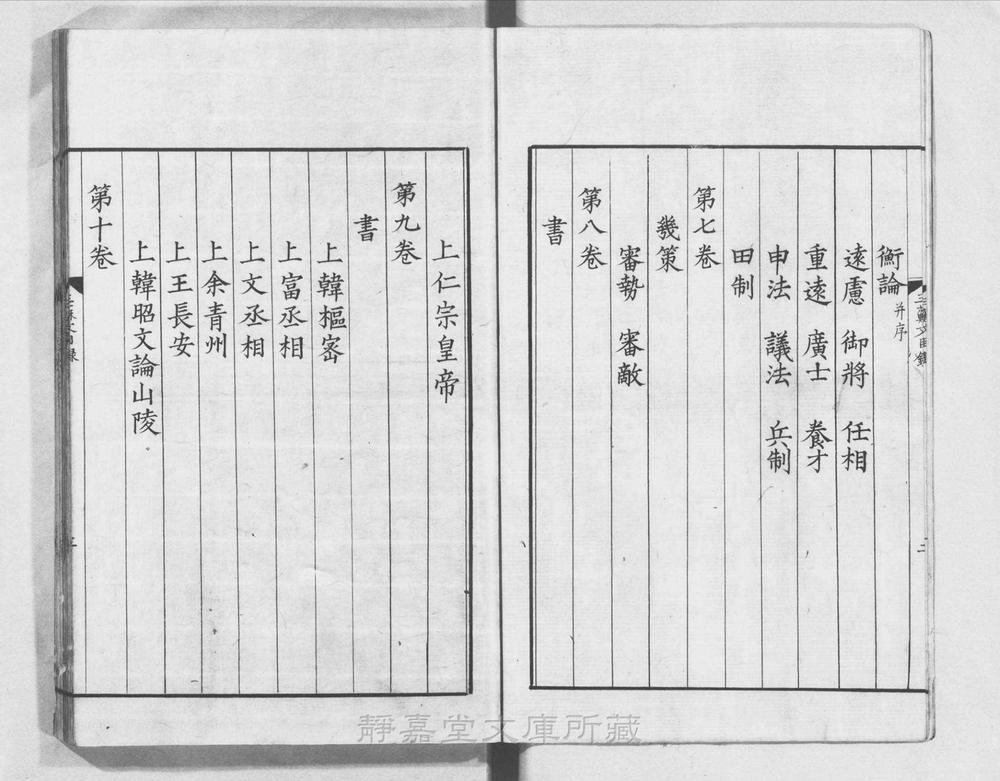 衡論并序
遠慮　御將　任相
重遠　廣士　養才
申法　議法　兵制
田制
第七卷
幾策
審勢　審敵
第八卷
書
上仁宗皇帝
第九卷
書
上韓樞宻
上富丞相
上文丞相
上余青州
上王長安
上韓昭文論山陵
第十卷
靜嘉堂文庫所藏